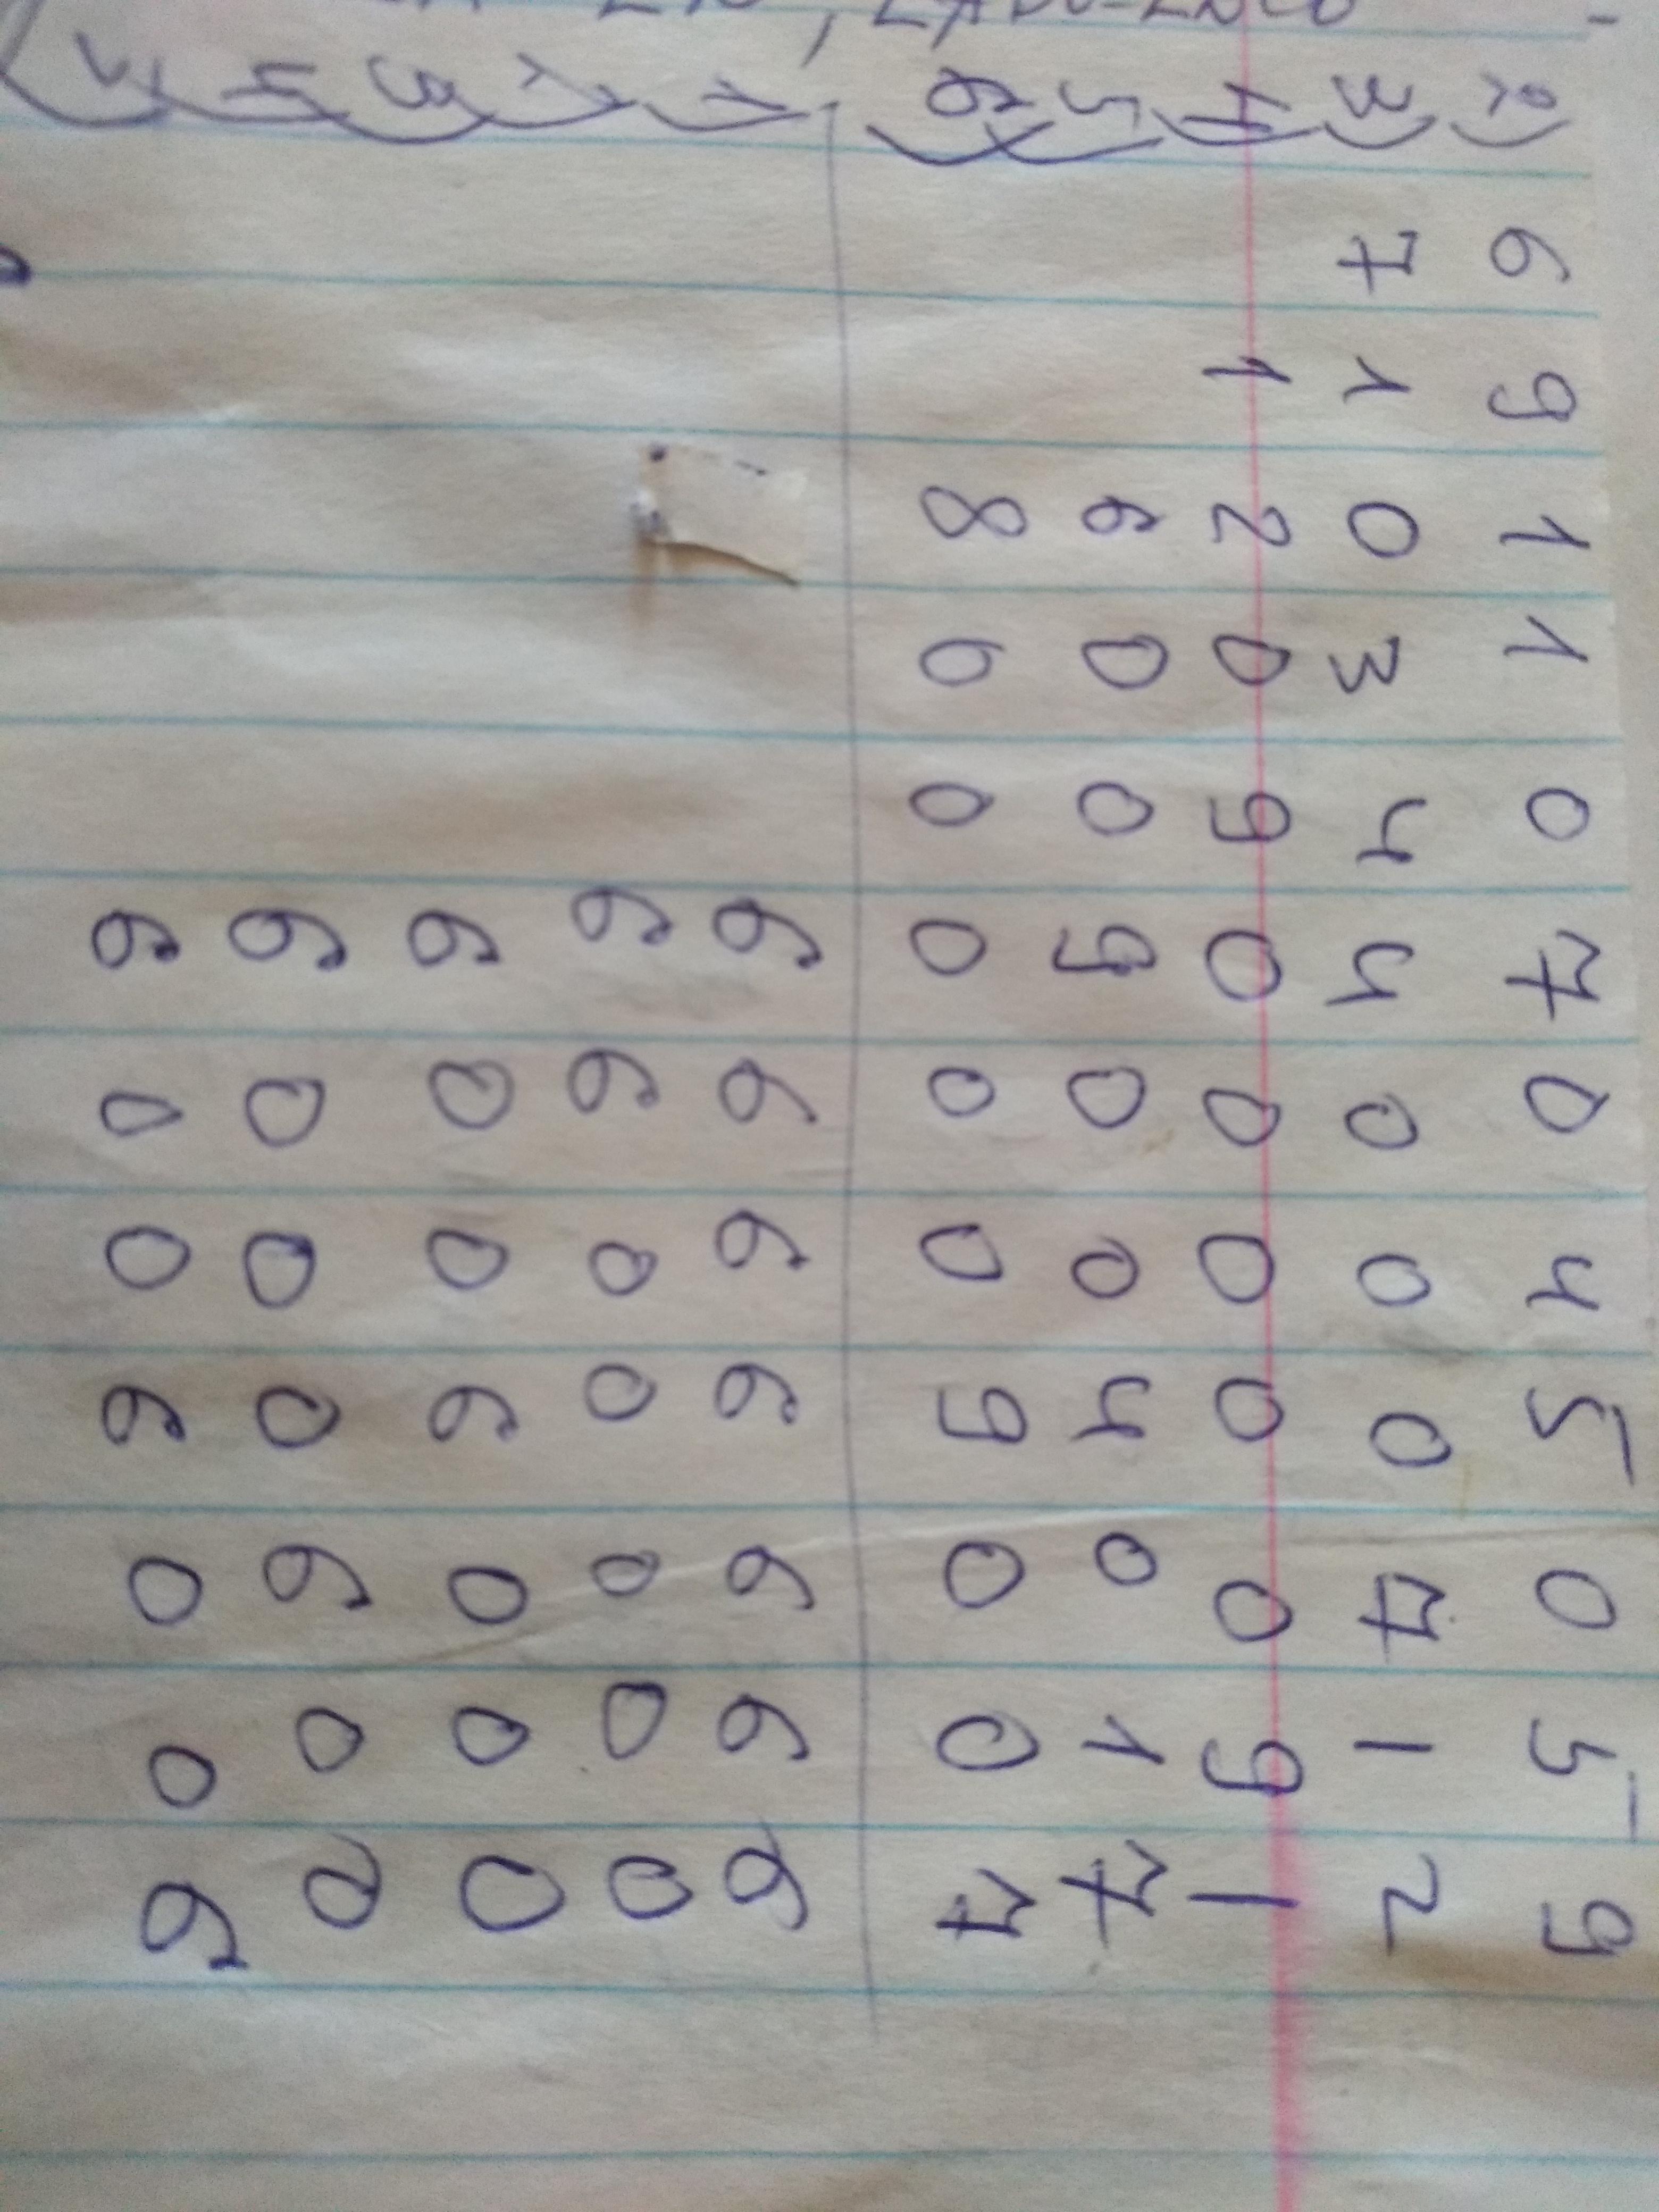 2) 6 9 1 1 0 7 0 4 5 0 5 9
3) 7 1 0 3 4 4 0 0 0 7 1 2
4) 1 2 0 9 0 0 0 0 0 9 1
5) 6 0 0 9 0 0 4 0 1 7
6) 8 0 0 0 0 0 9 0 0 7
1) 6 6 6 6 6 6 6
2) 6 6 0 0 0 0 0
3) 6 0 0 6 0 0 0
4) 6 0 0 0 6 0 0
5) 6 0 0 6 0 0 6